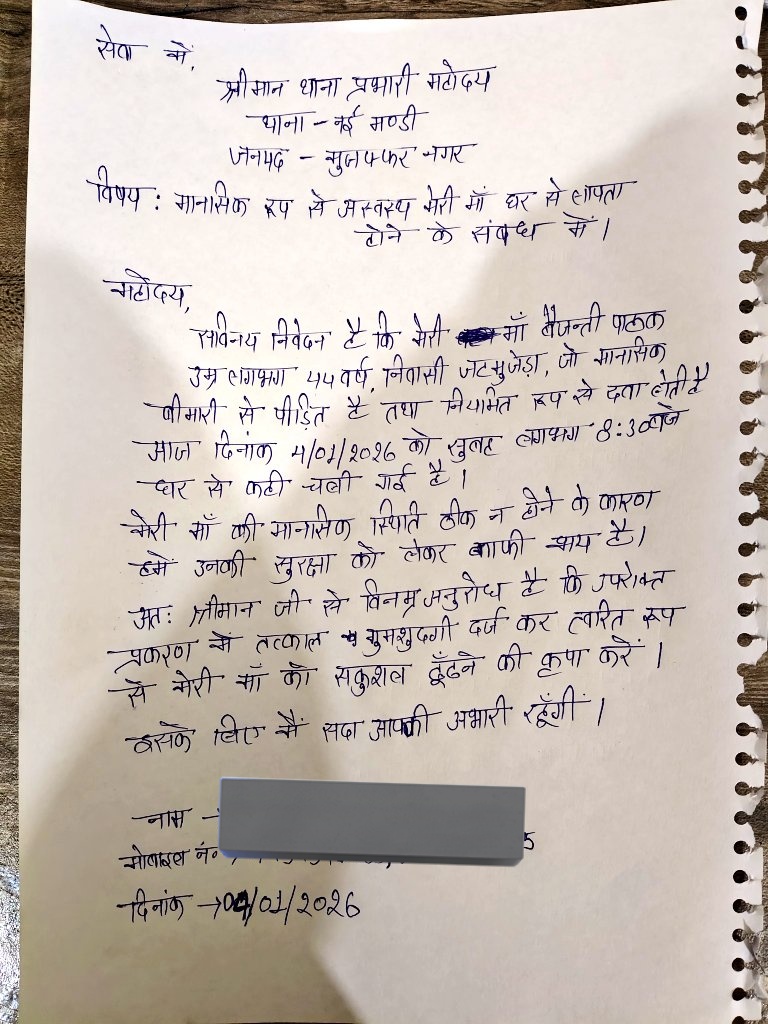 सेवा में,
श्रीमान थाना प्रभारी महोदय
थाना - नई मण्डी
जनपद - मुजफ्फर नगर
विषय : मानसिक रूप से अस्वस्थ मेरी माँ घर से लापता
होने के संबंध में।
महोदय,
सविनय निवेदन है कि मेरी माँ बैजन्ती पालक
उम्र लगभग 44 वर्ष, निवासी जटमुजेड़ा, जो मानसिक
बीमारी से पीड़ित है तथा नियमित रूप से दवा लेती है
आज दिनांक 4/01/2026 को सुबह लगभग 8:30 बजे
घर से कही चली गई है।
मेरी माँ की मानसिक स्थिति ठीक न होने के कारण
हमें उनकी सुरक्षा को लेकर काफी भय है।
अतः श्रीमान जी से विनम्र अनुरोध है कि उपरोक्त
प्रकरण में तत्काल गुमशुदगी दर्ज कर त्वरित रूप
से मेरी माँ को सकुशल ढूँढने की कृपा करें।
इसके लिए मैं सदा आपकी अभारी रहूँगीं।
नाम -
मोबाइल नं० 5
दिनांक → 04/01/2026